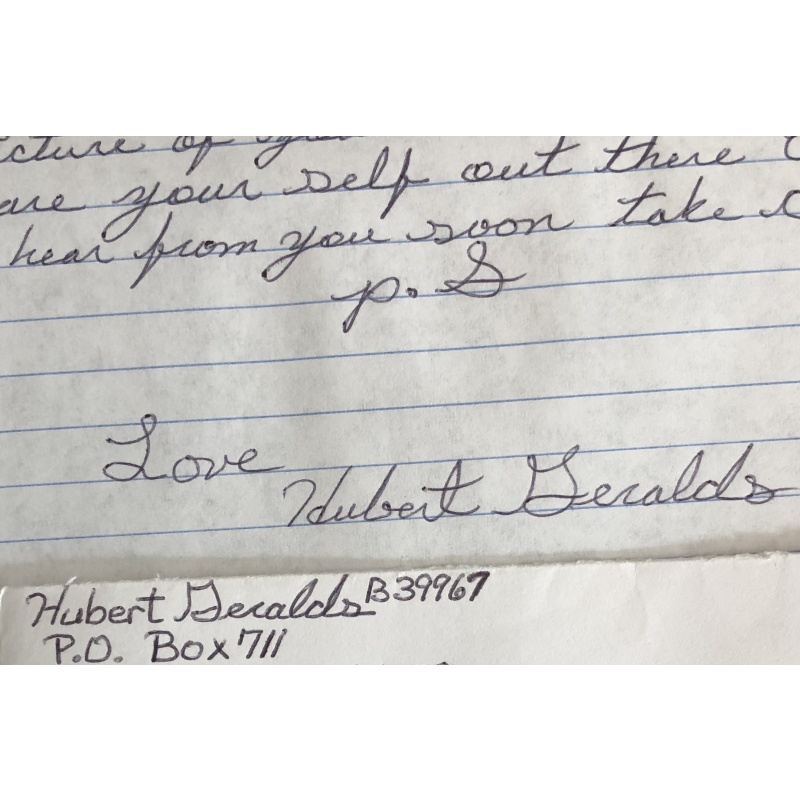 cture of you
are your self out there
hear from you soon take
p. S
Love
Hubert Geralds
Hubert Geralds B39967
P.O. Box 711